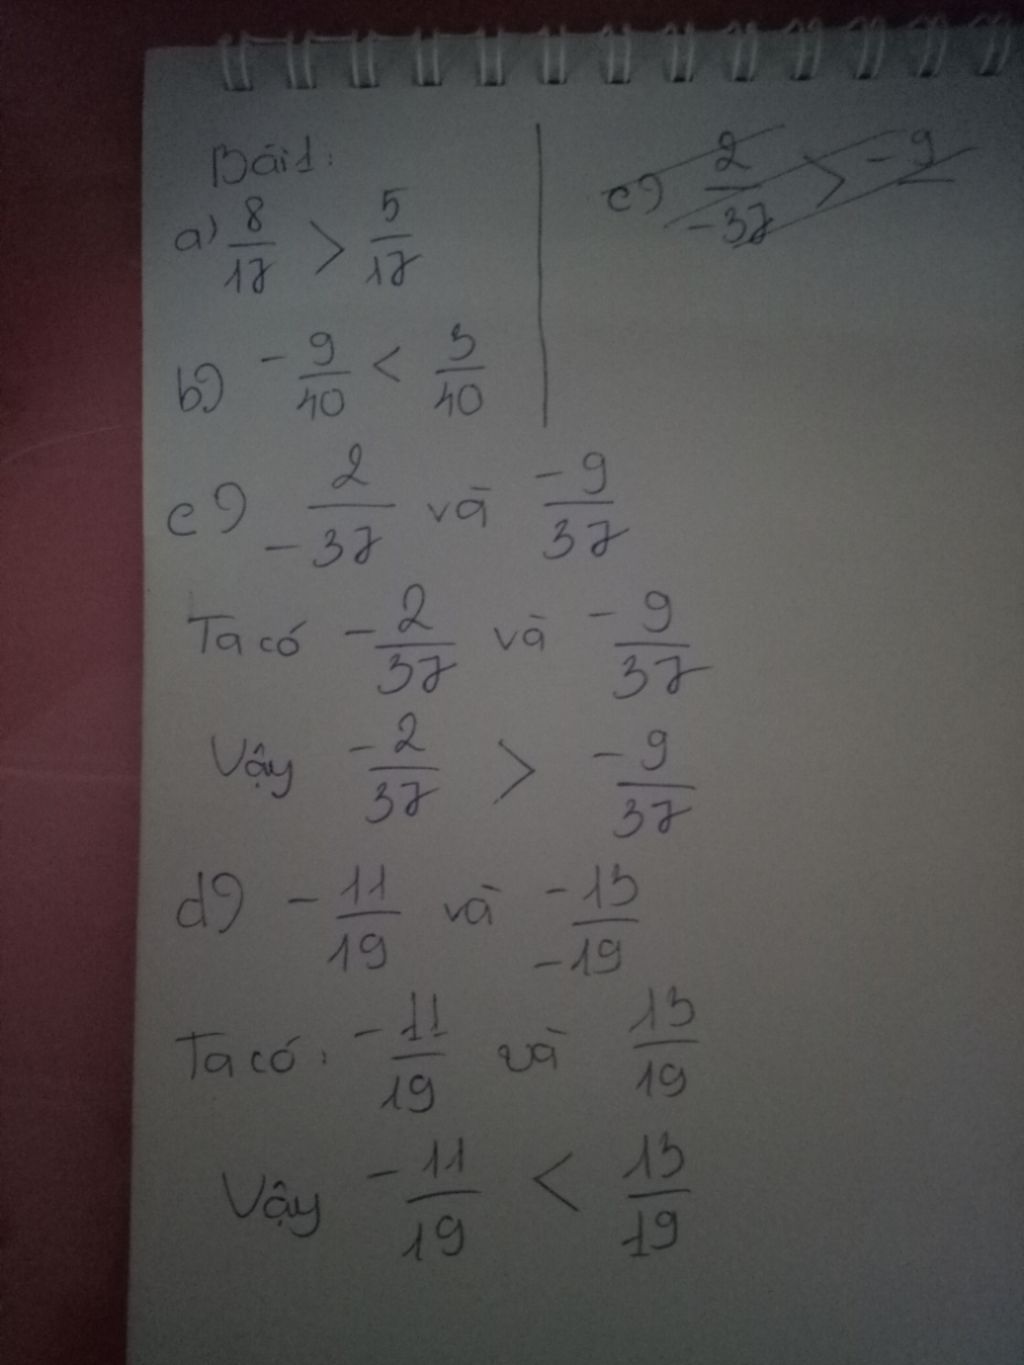 Bài 1:
a) 8/17 > 5/17
b) -9/40 < 3/40
c) 2/-37 và -9/37
Ta có -2/37 và -9/37
Vậy -2/37 > -9/37
d) -11/19 và -13/-19
Ta có: -11/19 và 13/19
Vậy -11/19 < 13/19
c) 2/-37 > -9/